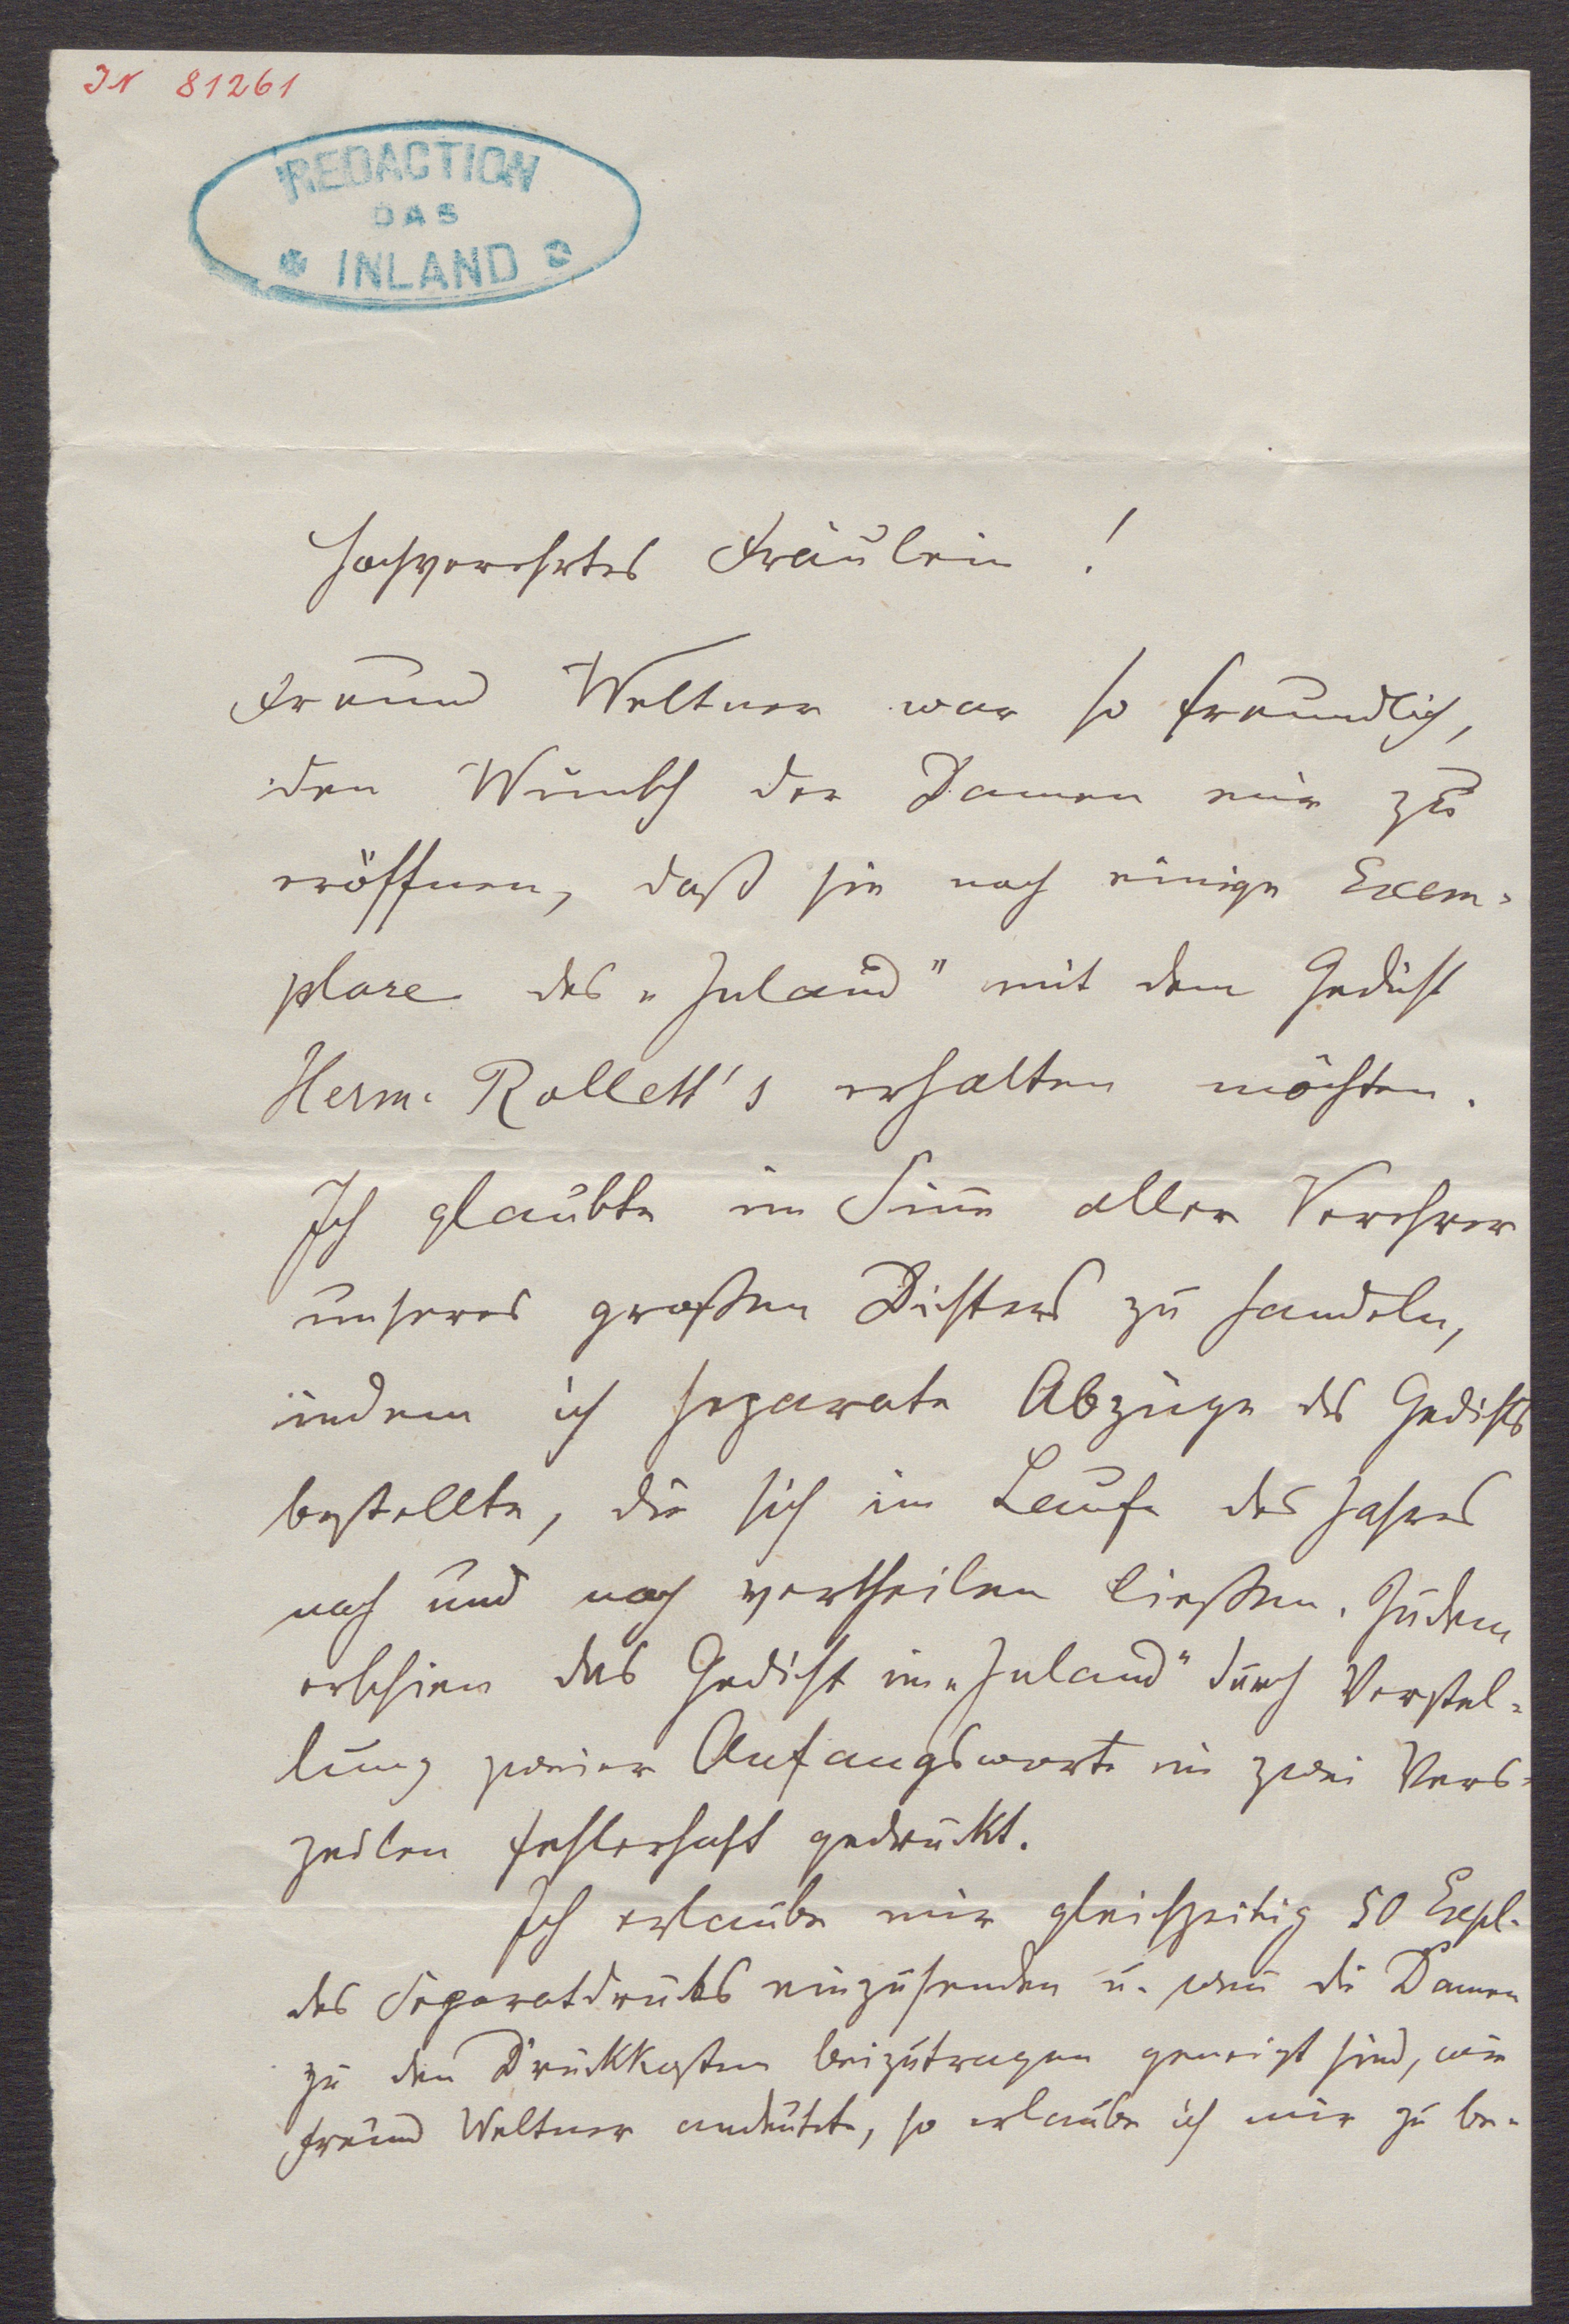 IN 81261
REDACTION
DAS
INLAND
Hochverehrtes Fräulein!
Freund Weltner war so freundlich,
den Wunsch der Damen mir zu
eröffnen, daß sie noch einige Exem-
plare des „Inland" mit dem Gedicht
Herm. Rollett's erhalten möchten.
Ich glaubte im Sinne aller Verehrer
unseres großen Dichters zu handeln,
indem ich separate Abzüge des Gedichts
bestellte, die sich im Laufe des Jahres
nach und nach vertheilen ließen. Zudem
erschien das Gedicht im „Inland" durch Verstel-
lung zweier Anfangsworte in zwei Vers-
zeilen fehlerhaft gedruckt.
Ich erlaube mir gleichzeitig 50 Expl.
des Separatdrucks einzusenden u. wenn die Damen
zu den Druckkosten beizutragen geneigt sind, wie
Freund Weltner andeutete, so erlaube ich mir zu be-